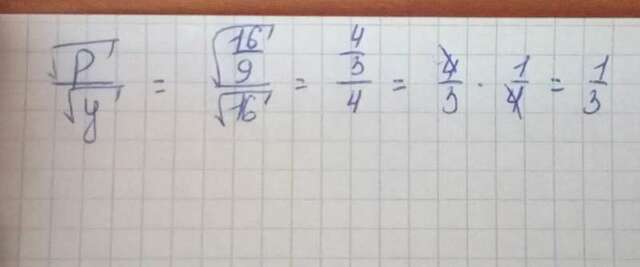 √p/√y = √(16/9)/√16 = (4/3)/4 = 4/3 · 1/4 = 1/3